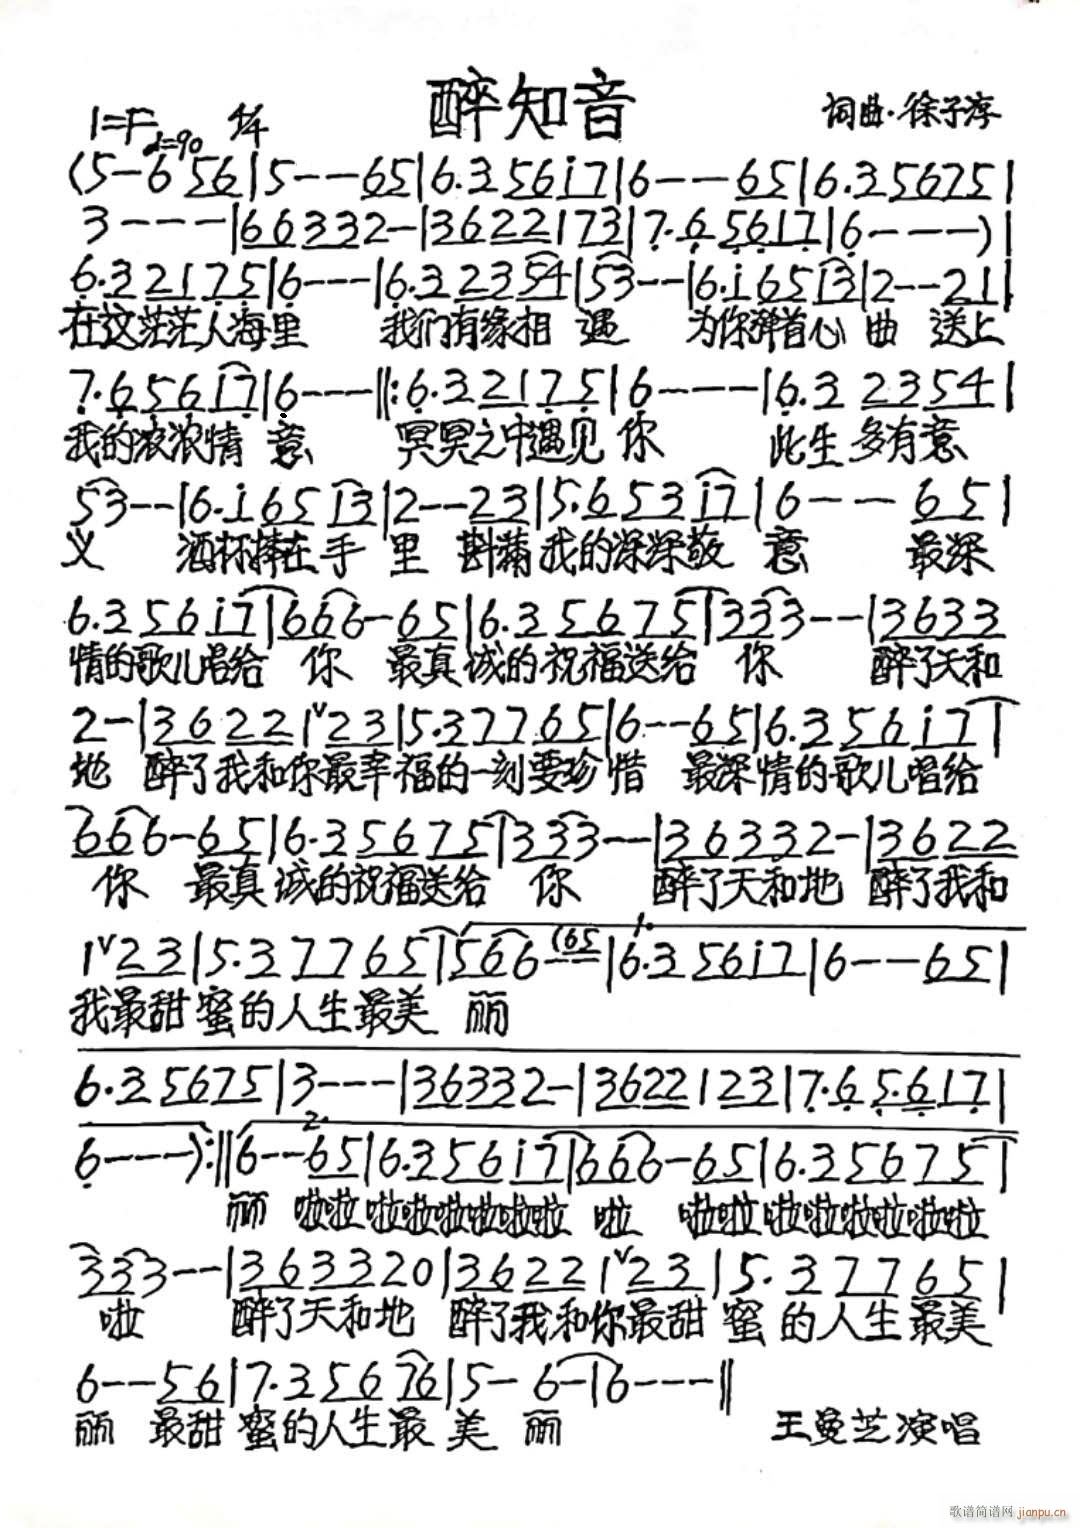 醉知音
1=F ♩=90 4/4 词曲·徐子淳
(5-6 56|5---65|6.3 5617|6---65|6.35675|
3----|66332-|36221 73|7.6 5617|6----)|
6.3 2175|6---|6.3 2354|53--|6.1 6513|2--21|
在这茫茫人海里 我们有缘相 遇 为你弹首心 曲 送上
7.6 5617|6---‖:6.3 2175|6----|6.3 2354|
我的浓浓情 意 冥冥之中遇见 你 此生 多有意
53--|6.1 6513|2--23|5.6 5317|6---65|
义 酒杯捧在 手 里 斟满 我的深深敬 意 最深
6.3 5617|666-65|6.3 5675|333--|3633
情的歌儿唱给 你 最真诚的祝福送给 你 醉了天和
2-|36221ˇ23|5.3 7765|6--65|6.3 5617|
地 醉了我和你最幸福的一刻要珍惜 最深情的歌儿唱给
666-65|6.3 5675|333--|36332-|3622
你 最真诚的祝福送给 你 醉了天和地 醉了我和
1ˇ23|5.3 7765|566--(65|6.3 5617|6--65| 1.
我最甜蜜的人生最美 丽
6.3 5675|3---|36332-|3622123|7.6 5.617|
6---):‖6--65|6.3 5617|666-65|6.3 5675| 2.
丽 啦啦啦啦啦啦啦啦 啦 啦啦啦啦啦啦啦啦
333--|363320|36221ˇ23|5.3 7765|
啦 醉了天和地 醉了我和你最甜蜜的人生最美
6--56|7.3 5676|5-6-|6---‖
丽 最甜蜜的人生最 美 丽 王曼芝演唱
歌谱简谱网 jianpu.cn